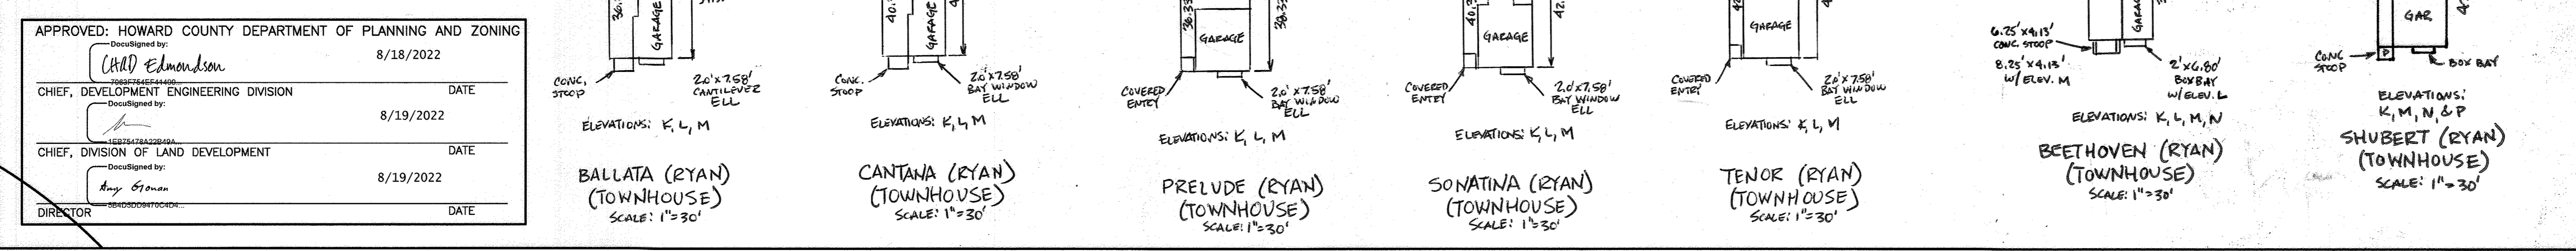 APPROVED: HOWARD COUNTY DEPARTMENT OF PLANNING AND ZONING
DocuSigned by:
CHAD Edmondson
8/18/2022
7063F754EF41409...
CHIEF, DEVELOPMENT ENGINEERING DIVISION DATE
DocuSigned by:
8/19/2022
1EB75478A22B49A...
CHIEF, DIVISION OF LAND DEVELOPMENT DATE
DocuSigned by:
Amy Gonan
8/19/2022
5B4D5DD9470C4D4...
DIRECTOR DATE
GARAGE
CONC.
STOOP
2.0'X7.58'
CANTILEVER
ELL
ELEVATIONS: K, L, M
BALLATA (RYAN)
(TOWNHOUSE)
SCALE: 1"=30'
GARAGE
CONC.
STOOP
2.0'X7.58'
BAY WINDOW
ELL
ELEVATIONS: K, L, M
CANTANA (RYAN)
(TOWNHOUSE)
SCALE: 1"=30'
38.33
38.33
GARAGE
COVERED
ENTRY
2.0'X7.58'
BAY WINDOW
ELL
ELEVATIONS: K, L, M
PRELUDE (RYAN)
(TOWNHOUSE)
SCALE: 1"=30'
GARAGE
COVERED
ENTRY
2.0'X7.58'
BAY WINDOW
ELL
ELEVATIONS: K, L, M
SONATINA (RYAN)
(TOWNHOUSE)
SCALE: 1"=30'
GARAGE
COVERED
ENTRY
2.0'X7.58'
BAY WINDOW
ELL
ELEVATIONS: K, L, M
TENOR (RYAN)
(TOWNHOUSE)
SCALE: 1"=30'
GARAG
6.25'X4.13'
CONC. STOOP
8.25'X4.13'
W/ELEV. M
2'X6.80'
BOXBAY
W/ELEV. L
ELEVATIONS: K, L, M, N
BEETHOVEN (RYAN)
(TOWNHOUSE)
SCALE: 1"=30'
GAR
CONC
STOOP
BOX BAY
ELEVATIONS:
K, M, N, & P
SHUBERT (RYAN)
(TOWNHOUSE)
SCALE: 1"=30'